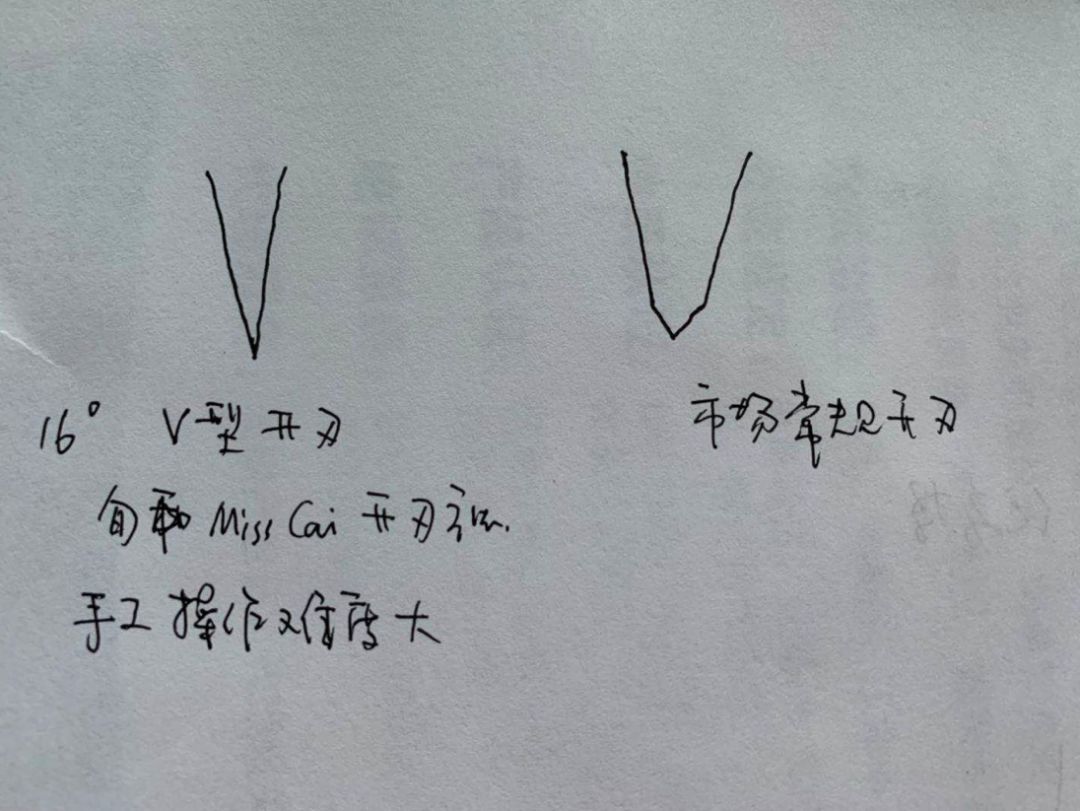 16° V型开刃
市场常规开刃
Miss Cai 开刃
手工操作难度大